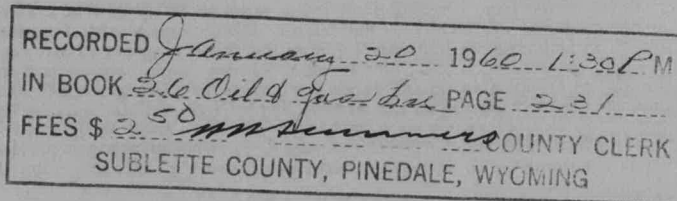 RECORDED January 20 1960 1:30 P M
IN BOOK 26 Oil & Gas PAGE 231
FEES $ 2 50 COUNTY CLERK
SUBLETTE COUNTY, PINEDALE, WYOMING